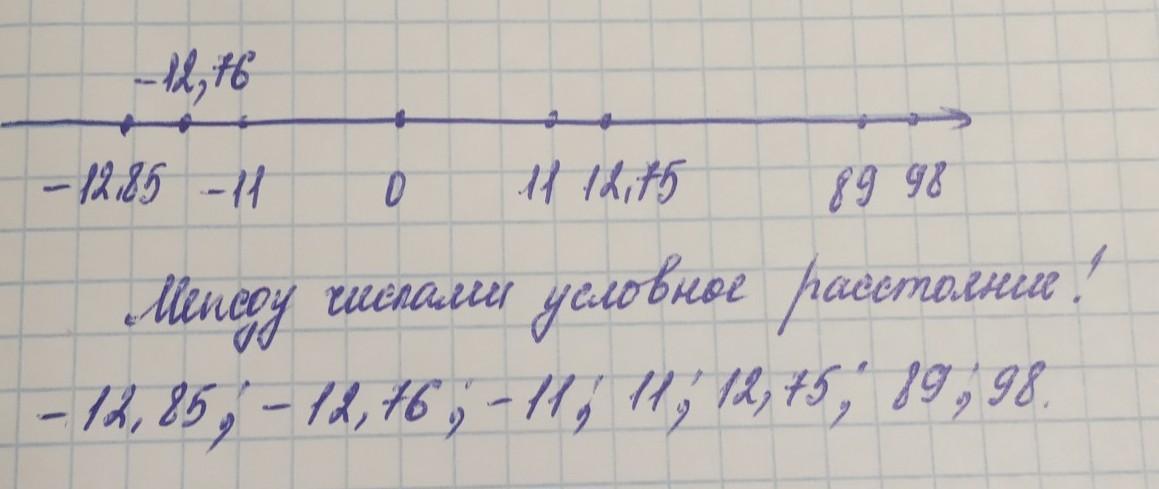 -12,76
-12,85 -11 0 11 12,75 89 98
Между числами условное расстояние!
-12,85; -12,76; -11; 11; 12,75; 89; 98.